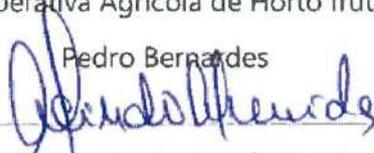 perativa Agrícola de Horto frut
Pedro Bernardes